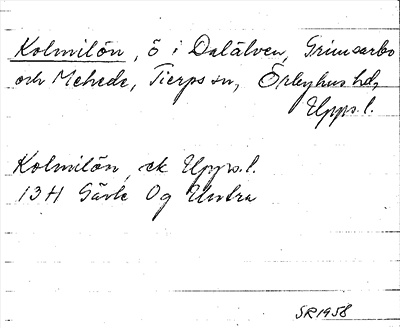 Kolmilön, ö i Dalälven, Grimsarbo
och Mehede, Tierps sn, Örbyhus hd,
Upps. l.
Kolmilön, ek Upps. l.
13H Gävle 0g Untra
SR1958